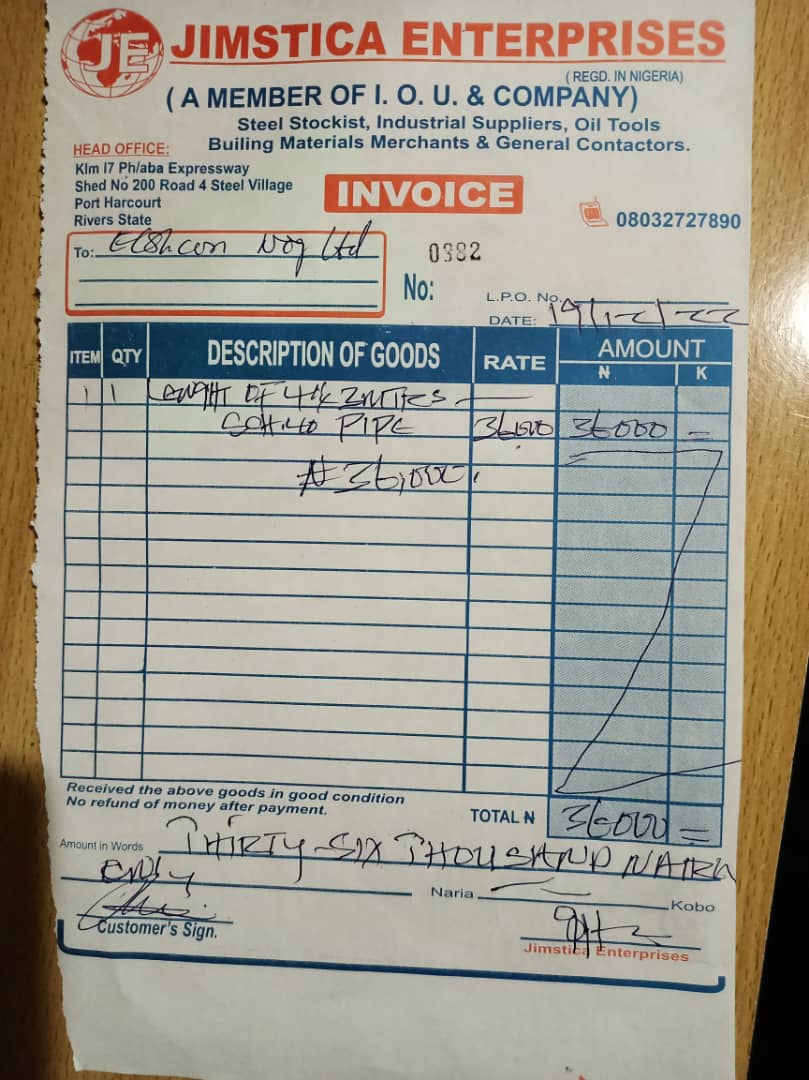 JE JIMSTICA ENTERPRISES
( REGD. IN NIGERIA)
( A MEMBER OF I. O. U. & COMPANY)
Steel Stockist, Industrial Suppliers, Oil Tools
Builing Materials Merchants & General Contactors.
HEAD OFFICE:
Klm I7 Ph/aba Expressway
Shed No 200 Road 4 Steel Village
Port Harcourt
Rivers State
INVOICE
08032727890
To: Nig Ltd
0382
No:
L.P.O. No.
DATE: 19/12/22
ITEM QTY DESCRIPTION OF GOODS RATE AMOUNT
₦ K
1 1 OF
SCH 40 PIPE 36000 36000 =
₦36,000
Received the above goods in good condition
No refund of money after payment.
TOTAL ₦ 36000 =
Amount in Words THIRTY-SIX THOUSAND NAIRA
ONLY Naria Kobo
Customer's Sign.
Jimstica Enterprises